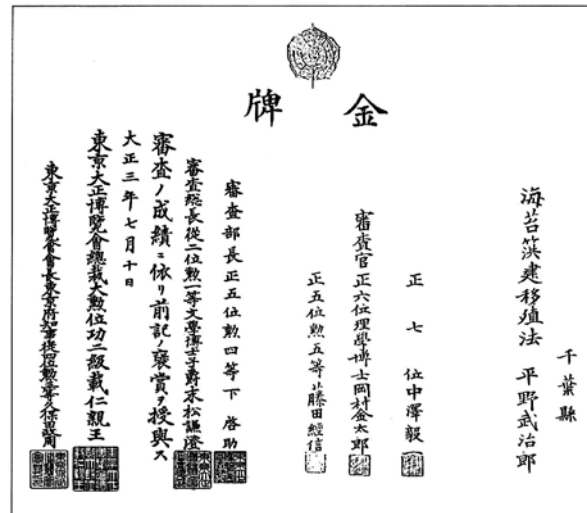 金牌
千葉縣
海苔篊建移殖法 平野武治郎
正七位中澤毅
審査官正六位理學博士岡村金太郎
正五位勲五等 藤田經信
審査部長正五位勲四等下啓助
審査總長從二位勲一等文學博士子爵末松謙澄
審査ノ成績ニ依リ前記ノ褒賞ヲ授與ス
大正三年七月十日
東京大正博覽會總裁大勲位功二級載仁親王
東京大正博覽會會長東京府知事從四位勲三等久保田政周